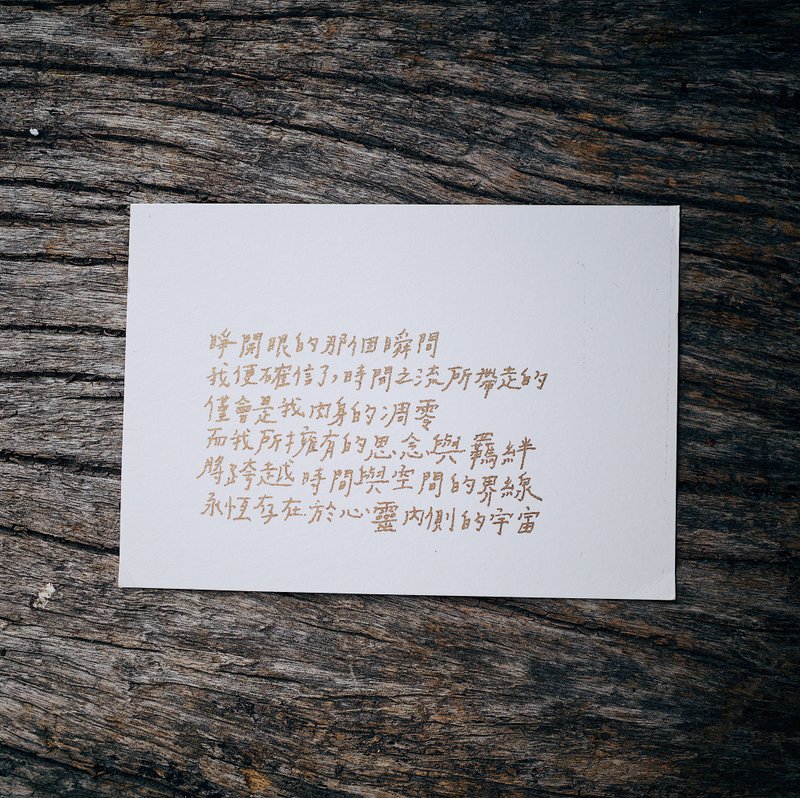 睜開眼的那個瞬間
我便確信了,時間之流所帶走的
僅會是我肉身的凋零
而我所擁有的思念與羈絆
將跨越時間與空間的界線
永恆存在於心靈內側的宇宙